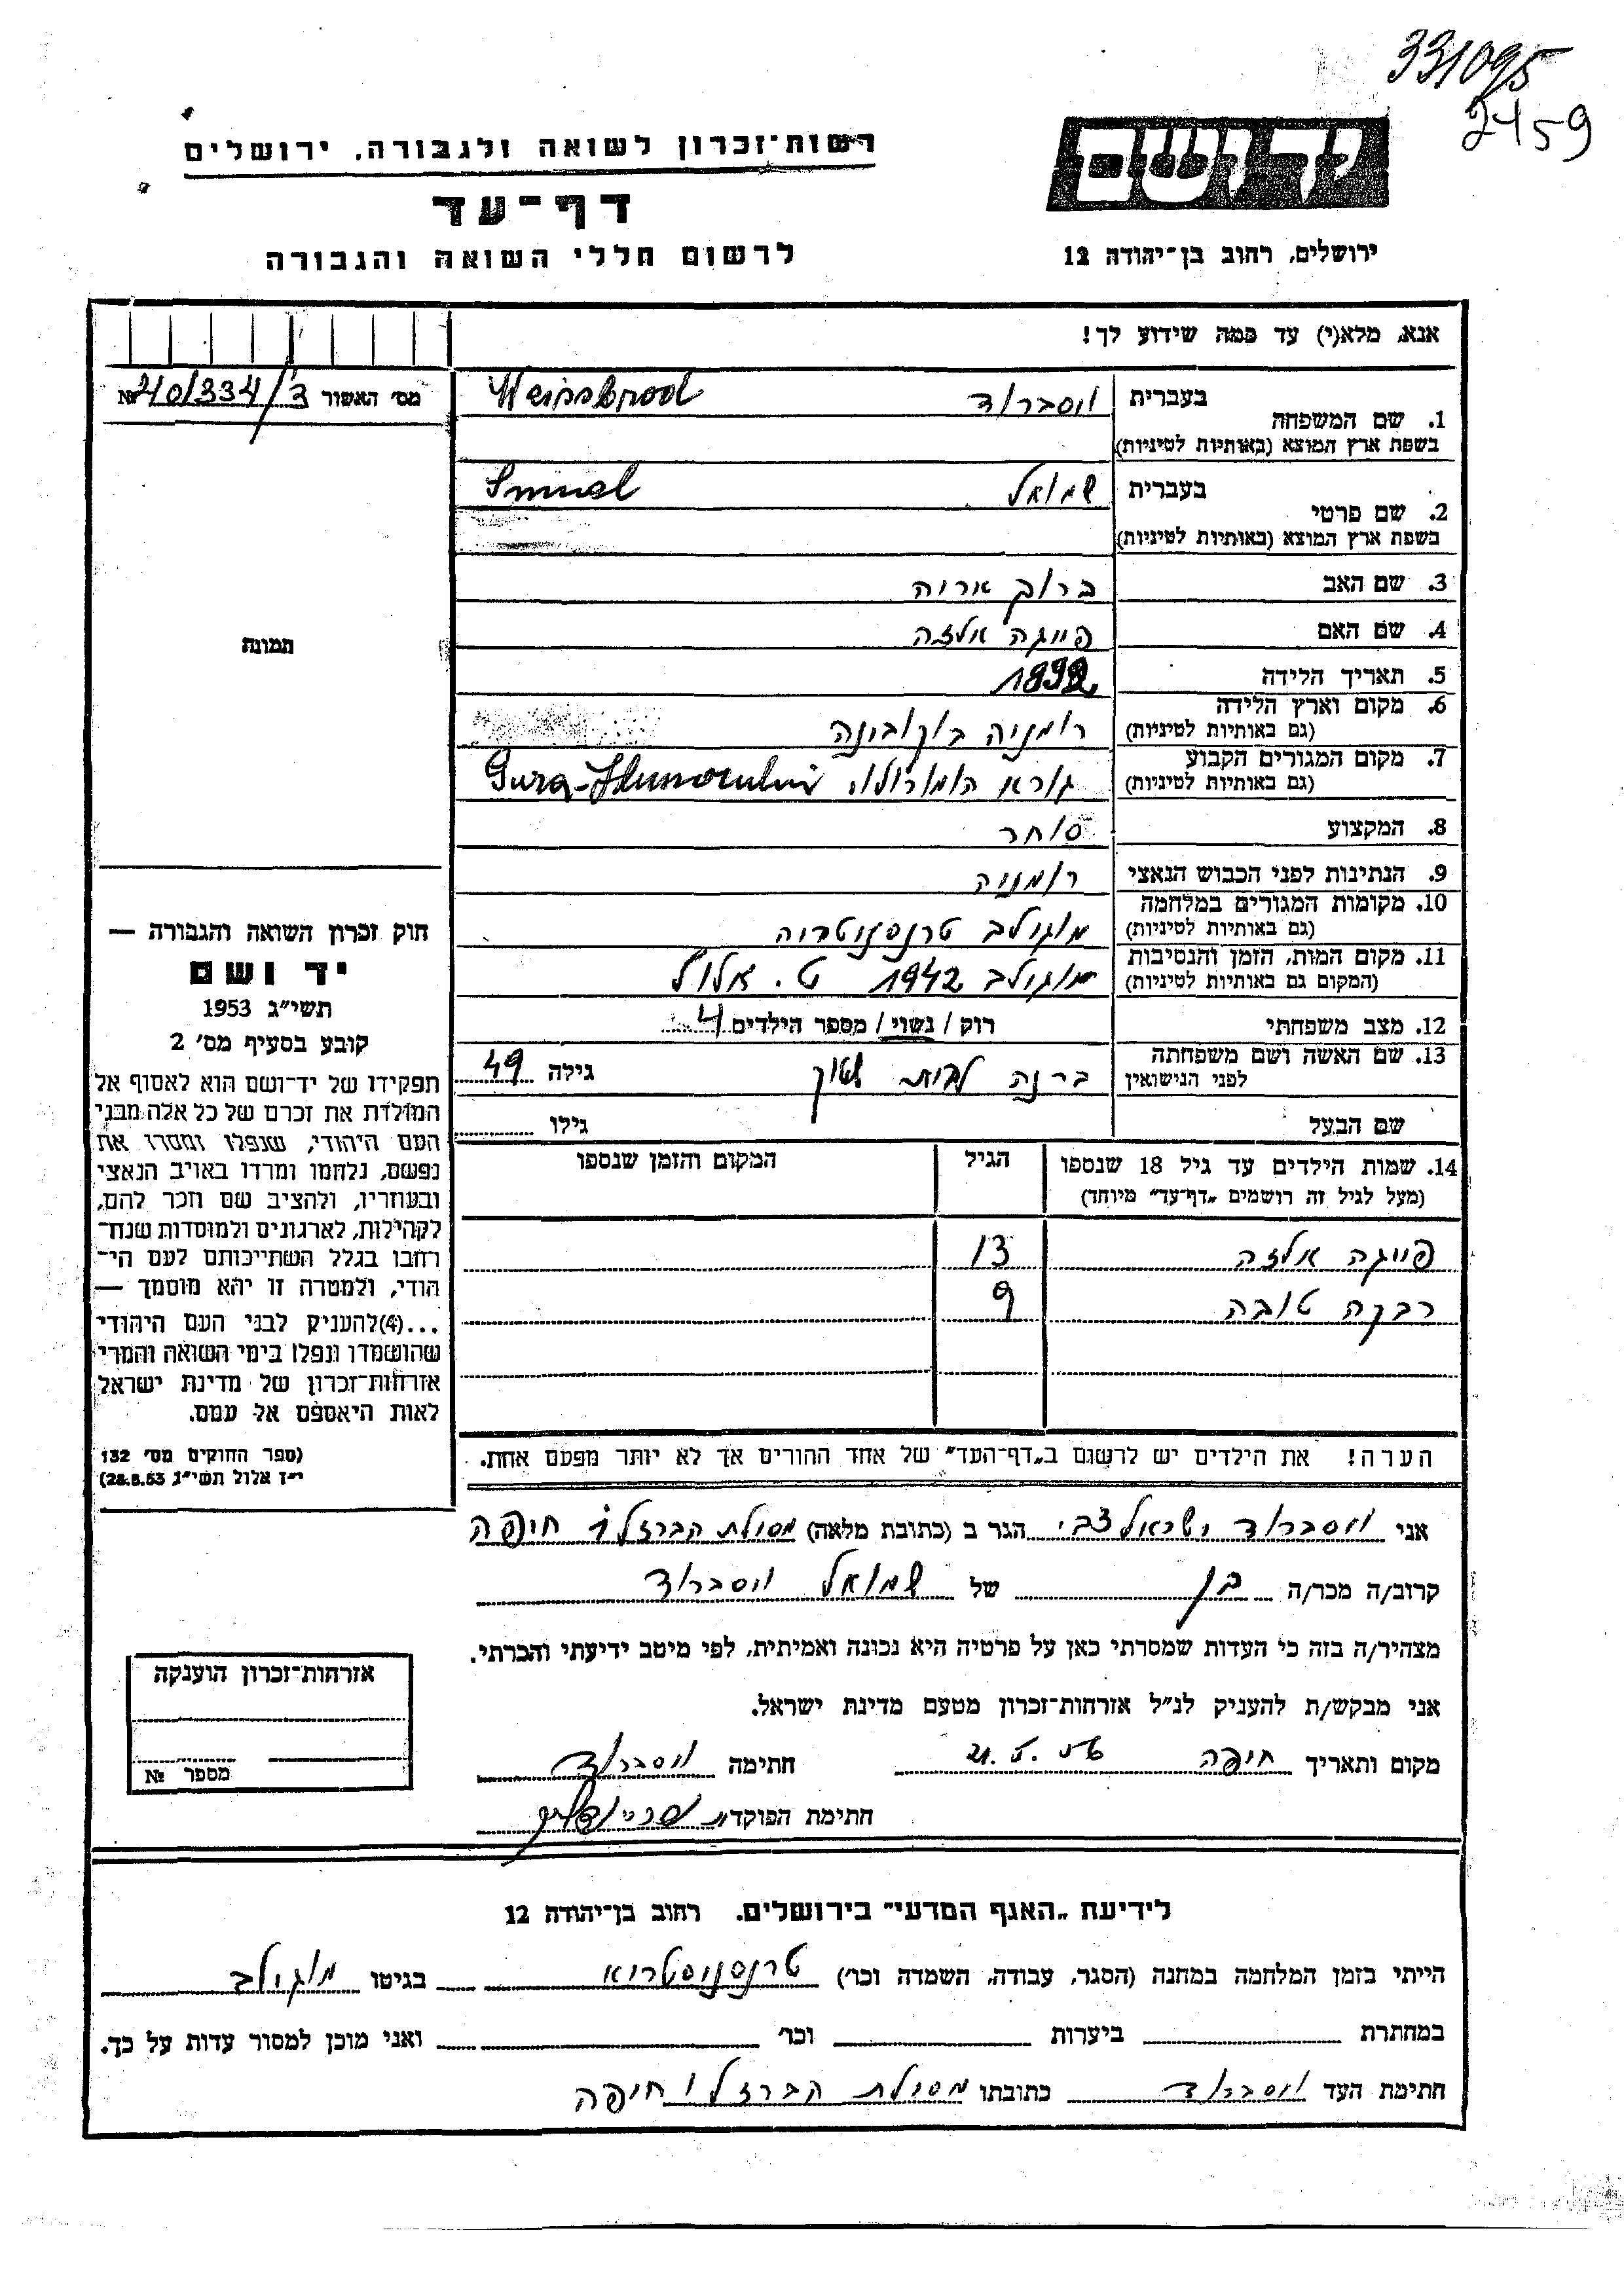 331095
2459
יד ושם
רשות־זכרון לשואה ולגבורה, ירושלים
דף־עד
לרשום חללי השואה והגבורה
ירושלים, רחוב בן־יהודה 12
אנא, מלא(י) עד כמה שידוע לך!
מס׳ האשור
№
1. שם המשפחה בעברית ווסברוד Weissbrod
בשפת ארץ המוצא (באותיות לטיניות)
2. שם פרטי בעברית שמואל Smuel
בשפת ארץ המוצא (באותיות לטיניות)
3. שם האב ברוך אריה
4. שם האם פייגה אלזה
5. תאריך הלידה
6. מקום וארץ הלידה רומניה בוקובינה
(גם באותיות לטיניות)
7. מקום המגורים הקבוע גורא הומורולוי Gura-Humorului
(גם באותיות לטיניות)
8. המקצוע סוחר
9. הנתינות לפני הכבוש הנאצי רומניה
10. מקומות המגורים במלחמה מוגילב
(גם באותיות לטיניות)
11. מקום המות, הזמן והנסיבות מוגילב 1942 ט. אלול
(המקום גם באותיות לטיניות)
12. מצב משפחתי רוק / נשוי / מספר הילדים 4
13. שם האשה ושם משפחתה ברנה לבית גילה 49
לפני הנישואין
שם הבעל גילו
14. שמות הילדים עד גיל 18 שנספו הגיל המקום והזמן שנספו
(מעל לגיל זה רושמים „דף־עד״ מיוחד)
פייגה אלזה 13
רבקה טובה 9
הערה! את הילדים יש לרשום ב„דף־העד״ של אחד ההורים אך לא יותר מפעם אחת.
תמונה
חוק זכרון השואה והגבורה —
יד ושם
תשי״ג 1953
קובע בסעיף מס׳ 2
תפקידו של יד־ושם הוא לאסוף אל
המולדת את זכרם של כל אלה מבני
העם היהודי, שנפלו ומסרו את
נפשם, נלחמו ומרדו באויב הנאצי
ובעוזריו, ולהציב שם וזכר להם,
לקהילות, לארגונים ולמוסדות שנח־
רבו בגלל השתייכותם לעם הי־
הודי, ולמטרה זו יהא מוסמך —
...(4)להעניק לבני העם היהודי
שהושמדו ונפלו בימי השואה והמרי
אזרחות־זכרון של מדינת ישראל
לאות היאספם אל עמם.
(ספר החוקים מס׳ 132
י״ז אלול תשי״ג, 28.8.53)
אני ווסברוד ישראל צבי הגר ב (כתובת מלאה) מסילת הברזל 1 חיפה
קרוב/ה מכר/ה בן של שמואל ווסברוד
מצהיר/ה בזה כי העדות שמסרתי כאן על פרטיה היא נכונה ואמיתית, לפי מיטב ידיעתי והכרתי.
אני מבקש/ת להעניק לנ״ל אזרחות־זכרון מטעם מדינת ישראל.
מקום ותאריך חיפה חתימה ווסברוד
חתימת הפוקד
אזרחות־זכרון הוענקה
מספר №
לידיעת „האגף המדעי״ בירושלים. רחוב בן־יהודה 12
הייתי בזמן המלחמה במחנה (הסגר, עבודה, השמדה וכו׳) טרנסניסטריא בגיטו מוגילב
במחתרת ביערות וכו׳ ואני מוכן למסור עדות על כך.
חתימת העד ווסברוד כתובתו מסילת הברזל 1 חיפה